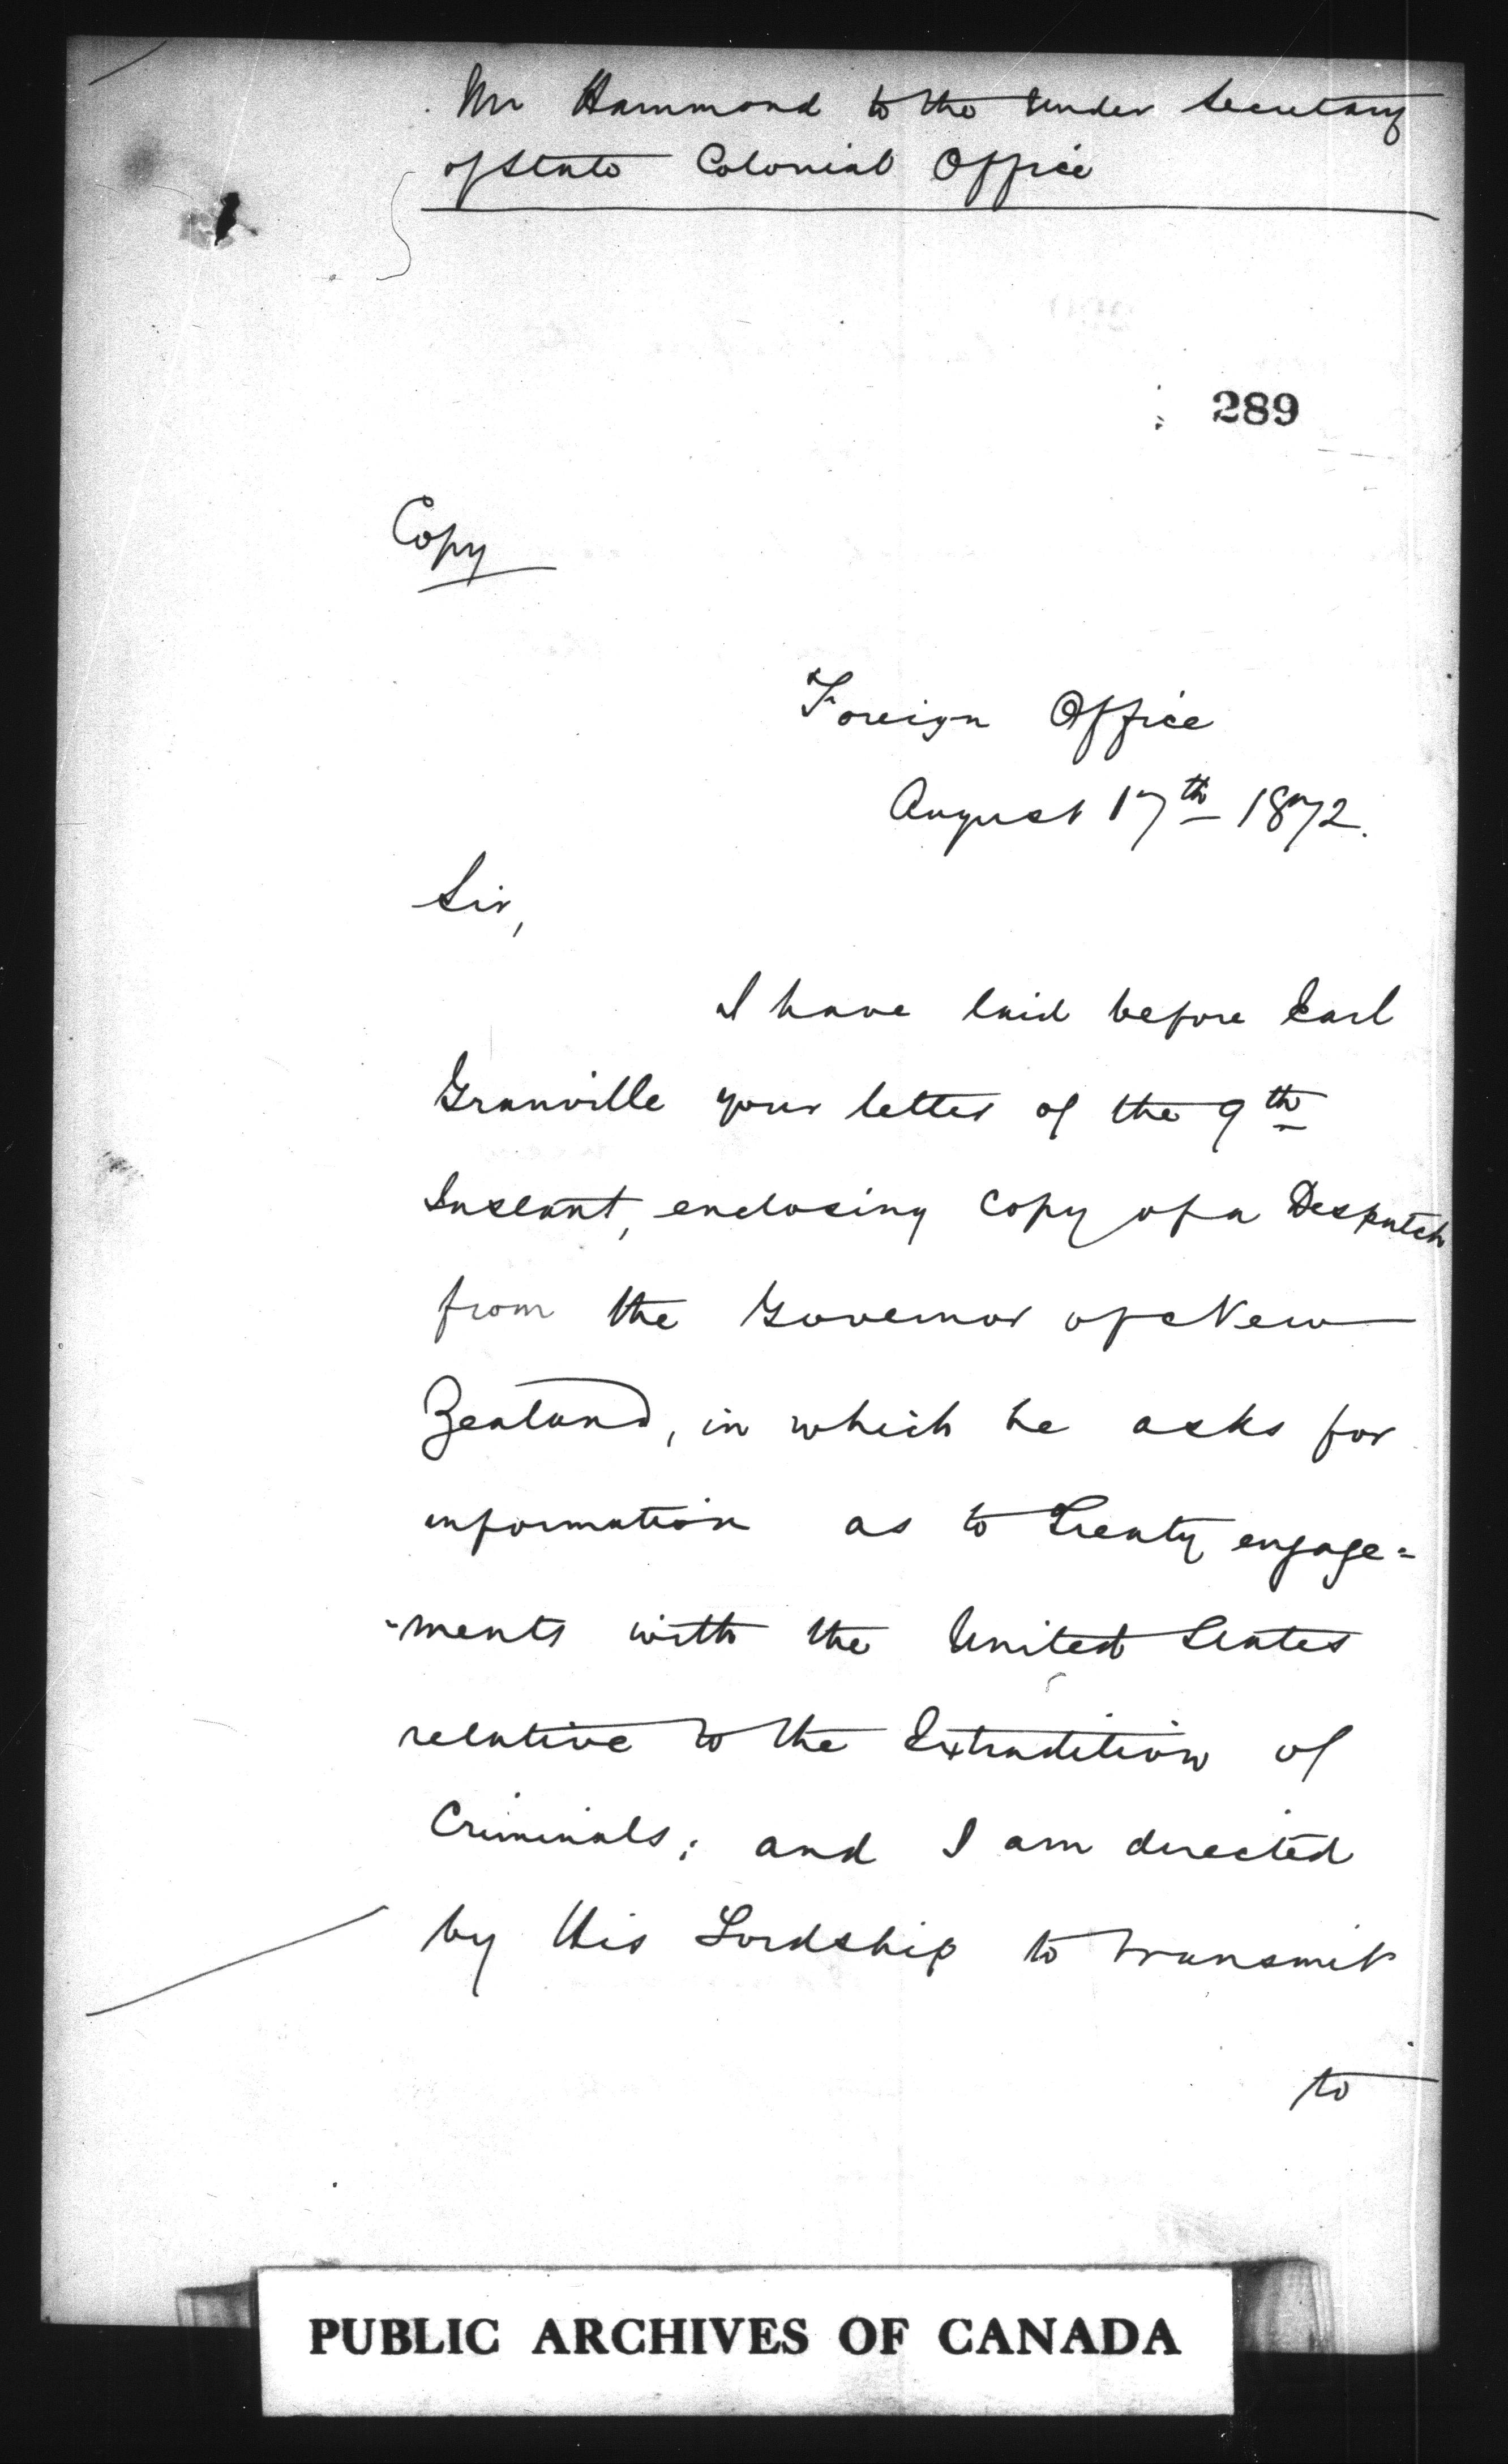 Mr Hammond to the Under Secretary
of State Colonial Office
289
Copy
Foreign Office
August 17th 1872.
Sir,
I have laid before Earl
Granville your letter of the 9th
Instant, enclosing Copy of a Despatch
from the Governor of New
Zealand, in which he asks for
information as to Treaty engage=
-ments with the United States
relative to the Extradition of
Criminals; and I am directed
by His Lordship to transmit
to
PUBLIC ARCHIVES OF CANADA